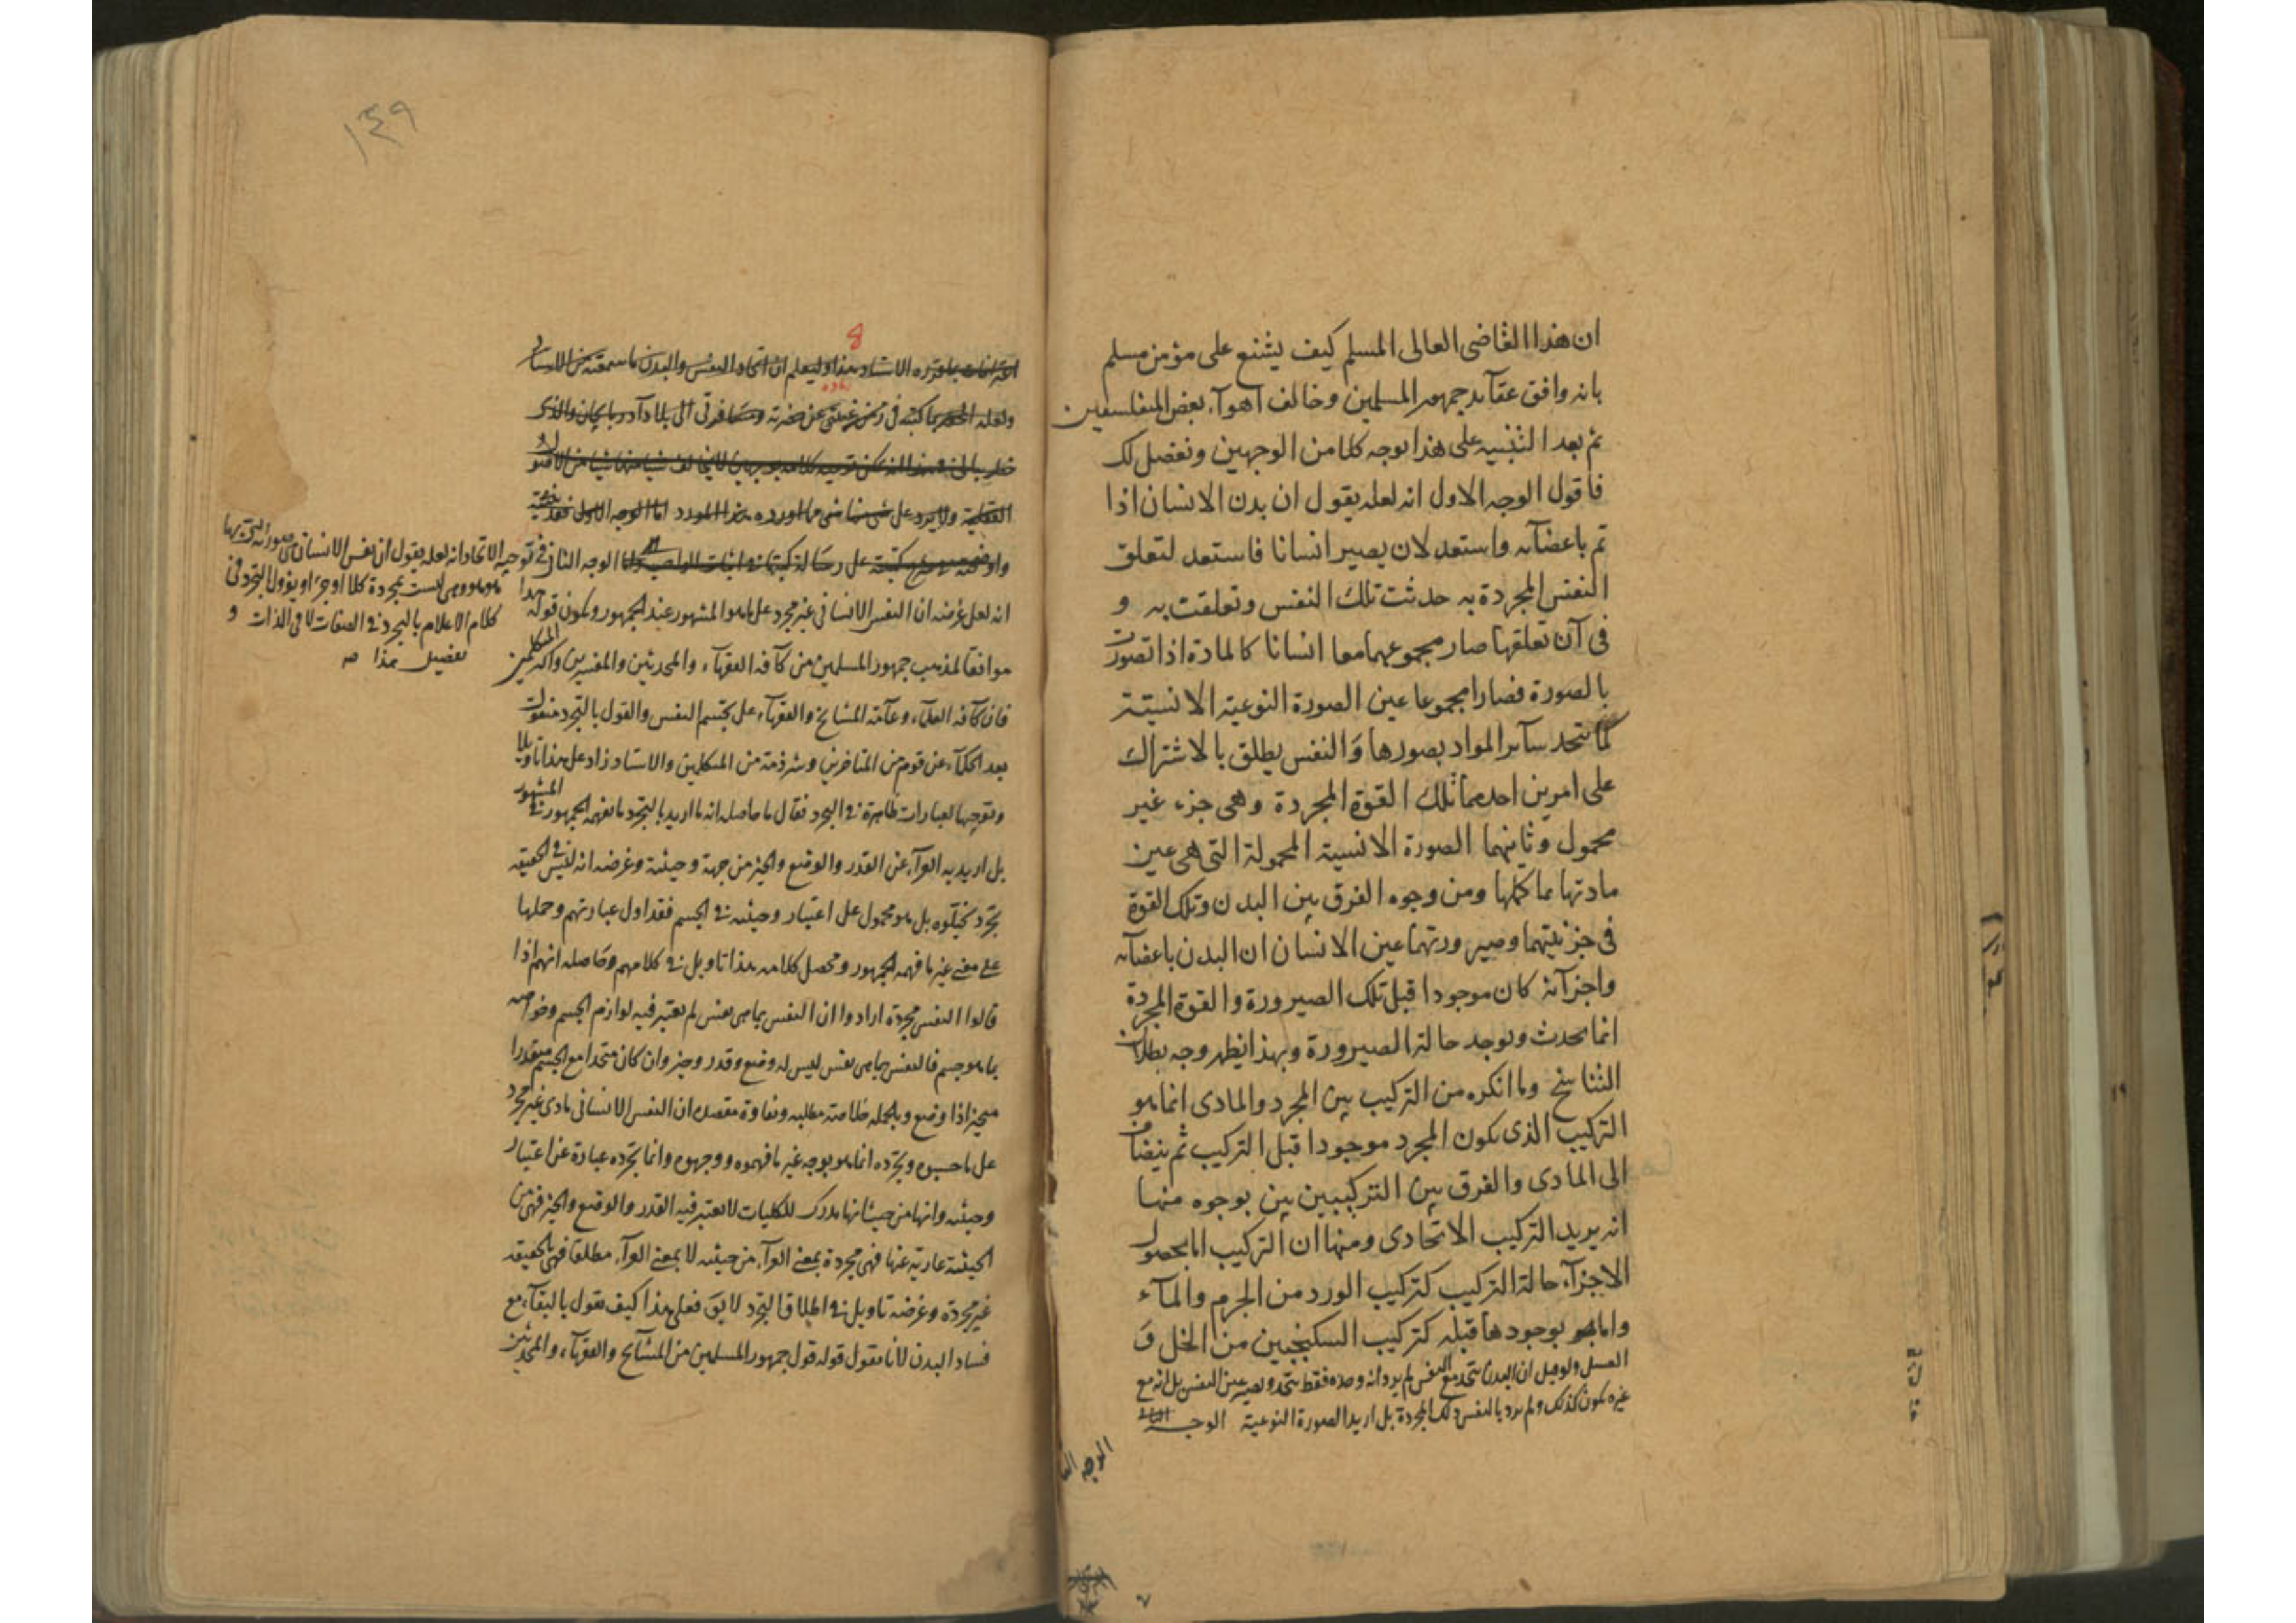 ان هذا القاضى العالى المسلم كيف يشنع على مؤمن مسلم
بانه وافق عقآيد جمهور المسلمين وخالف اهوآء بعض المتفلسفين
ثم بعد التنبيه على هذا نوجه كلامن الوجهين ونفصل لك
فاقول الوجه الاول انه لعله يقول ان بدن الانسان اذا
تم باعضآئه واستعد لان يصير انسانا فاستعد لتعلق
النفس المجردة به حدثت تلك النفس وتعلقت به و
فى آن تعلقها صار مجموعهما معا انسانا كالمادة اذا تصورت
بالصورة فصارا مجموعا عين الصورة النوعية الانسية
كما تتحد سآير المواد بصورها والنفس يطلق بالاشتراك
على امرين احدهما تلك القوة المجردة وهى جزء غير
محمول وثانيهما الصورة الانسية المحمولة التى هى عين
مادتها بما كلها ومن وجوه الفرق بين البدن وتلك القوة
فى جزئيتهما وصيرورتهما عين الانسان ان البدن باعضآئه
واجزآئه كان موجودا قبل تلك الصيرورة والقوة المجردة
انما تحدث وتوجد حالة الصيرورة وبهذا يظهر وجه بطلان
التناسخ وما انكره من التركيب بين المجرد والمادى انما هو
التركيب الذى يكون المجرد موجودا قبل التركيب ثم ينضاف
الى المادى والفرق بين التركيبين بين بوجوه منها
انه يريد التركيب الاتحادى ومنها ان التركيب اما بحصول
الاجزآء حالة التركيب كتركيب الورد من الجرم والمآء
واما هو بوجودها قبله كتركيب السكنجبين من الخل و
العسل ولو قيل ان البدن يتحد مع النفس لم يرد انه وحده فقط يتحد ويصير عين النفس بل انه مع
غيره يكون كذلك ولم يرد بالنفس تلك المجردة بل اريد الصورة النوعية الوجه
الوجه
١٤٩
8
الاستاد هذا وليعلم ان اتحاد النفس والبدن ما سمعته من الاستاد
ولعله كتبه فى زمن غيبتى عن حضرته ومسافرتى الى بلاد آذربايجان والذى
العقلية ولا يرد على شى مما اورده هذا المورد اما الوجه الاول فقد
على رسالة كتبتها فى اثبات الواجب الوجه الثانى
فى توجيه الاتحاد انه لعله يقول ان نفس الانسان صورته
هو هو وهى ليست بمجردة كلا او جزء او يؤول التجرد فى
كلام الاعلام بالتجرد فى الصفات لا فى الذات و
تفصيل هذا صه
انه لعل غرضه ان النفس الانسانى غير مجرد على ما هو المشهور عند الجمهور ويكون قوله هذا
موافقا لمذهب جمهور المسلمين من كآفة الفقهآء والمحدثين والمفسرين واكثر المتكلمين
فان كآفة العلمآء وعآمة المشايخ والفقهآء على تجسم النفس والقول بالتجرد منقول
بعد الحكمآء عن قوم من المتاخرين وشرذمة من المتكلمين والاستاد زاد على هذا تاويلا
وتوجيها لعبارات ظاهرة فى التجرد فقال ما حاصله انه ما اريد بالتجرد ما يفهمه الجمهور فى المشهور
بل اريد به العرآء عن القدر والوضع والحيز من جهة وحيثية وغرضه انه ليس فى الحقيقه
تجرد تخيلوه بل هو محمول على اعتبار وحيثية فى الجسم فقد اول عبارتهم وحملها
على معنى غير ما فهمه الجمهور ومحصل كلامه هذا تاويل فى كلامهم وحاصله انهم اذا
قالوا النفس مجردة ارادوا ان النفس بما هى نفس لم يعتبر فيه لوازم الجسم وخواصه
بما هو جسم فالنفس بما هى نفس ليس له وضع وقدر وحيز وان كان متحدا مع الجسم متقدرا
متحيزا ذا وضع وبالجملة خلاصة مطلبه ونقاوة مقصده ان النفس الانسانى مادى غير مجرد
على ما حسبوه وتجرده انما هو بوجه غير ما فهموه ووجهوه وانما تجرده عبارة عن اعتبار
وحيثية وانها من حيث انها مدرك للكليات لا يعتبر فيه القدر والوضع والحيز فهى من
الحيثية عارية عنها فهى مجردة بمعنى العرآء من حيثية لا بمعنى العرآء مطلقا فهى بالحقيقه
غير مجردة وغرضه تاويل فى اطلاق التجرد لايق فعلى هذا كيف يقول بالبقآء مع
فساد البدن لانا نقول قوله قول جمهور المسلمين من المشآيخ والفقهآء والمحدثين